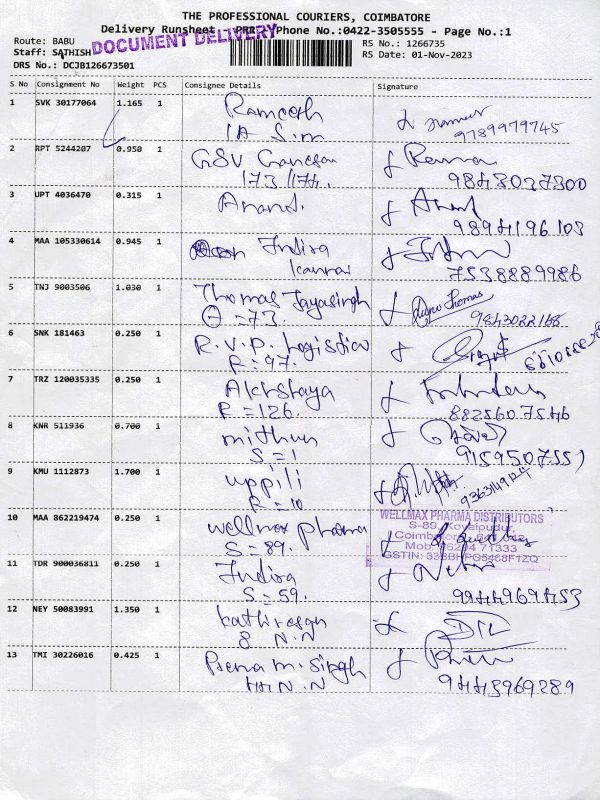 THE PROFESSIONAL COURIERS, COIMBATORE
Delivery Runsheet - PRR / Phone No.:0422-3505555 - Page No.:1
DOCUMENT DELIVERY
Route: BABU
RS No.: 1266735
Staff: SATHISH
RS Date: 01-Nov-2023
DRS No.: DCJB126673501
S No Consignment No Weight PCS Consignee Details Signature
1 SVK 30177064 1.165 1 Ramesh
1A S.m 9789979745
2 RPT 5244207 0.950 1 GSV Ganesan
173/174. 9843037300
3 UPT 4036470 0.315 1 Anand. Anand
9894196103
4 MAA 105330614 0.945 1 Indira
Kannan 7538889986
5 TNJ 9003506 1.030 1 Thomas Jayasingh Thomas
=73. 9843022168
6 SNK 181463 0.250 1 R.V.P. Logistics
R=97.
7 TRZ 120035335 0.250 1 Akshaya
R=126. 8825607546
8 KNR 511936 0.700 1 mithun
S=1 9159507551
9 KMU 1112873 1.700 1 uppili
R=10
10 MAA 862219474 0.250 1 wellmax pharma
S=89.
WELLMAX PHARMA DISTRIBUTORS
S-89, Kovaipudur,
71333
GSTIN: 33BBHPG5468F1ZQ
11 TDR 900036811 0.250 1 Indira
S=59. 9944969453
12 NEY 50083991 1.350 1 Kathiresan
8 N.N
13 TMI 30226016 0.425 1 Prema m. Singh
44 N.N 9443969289